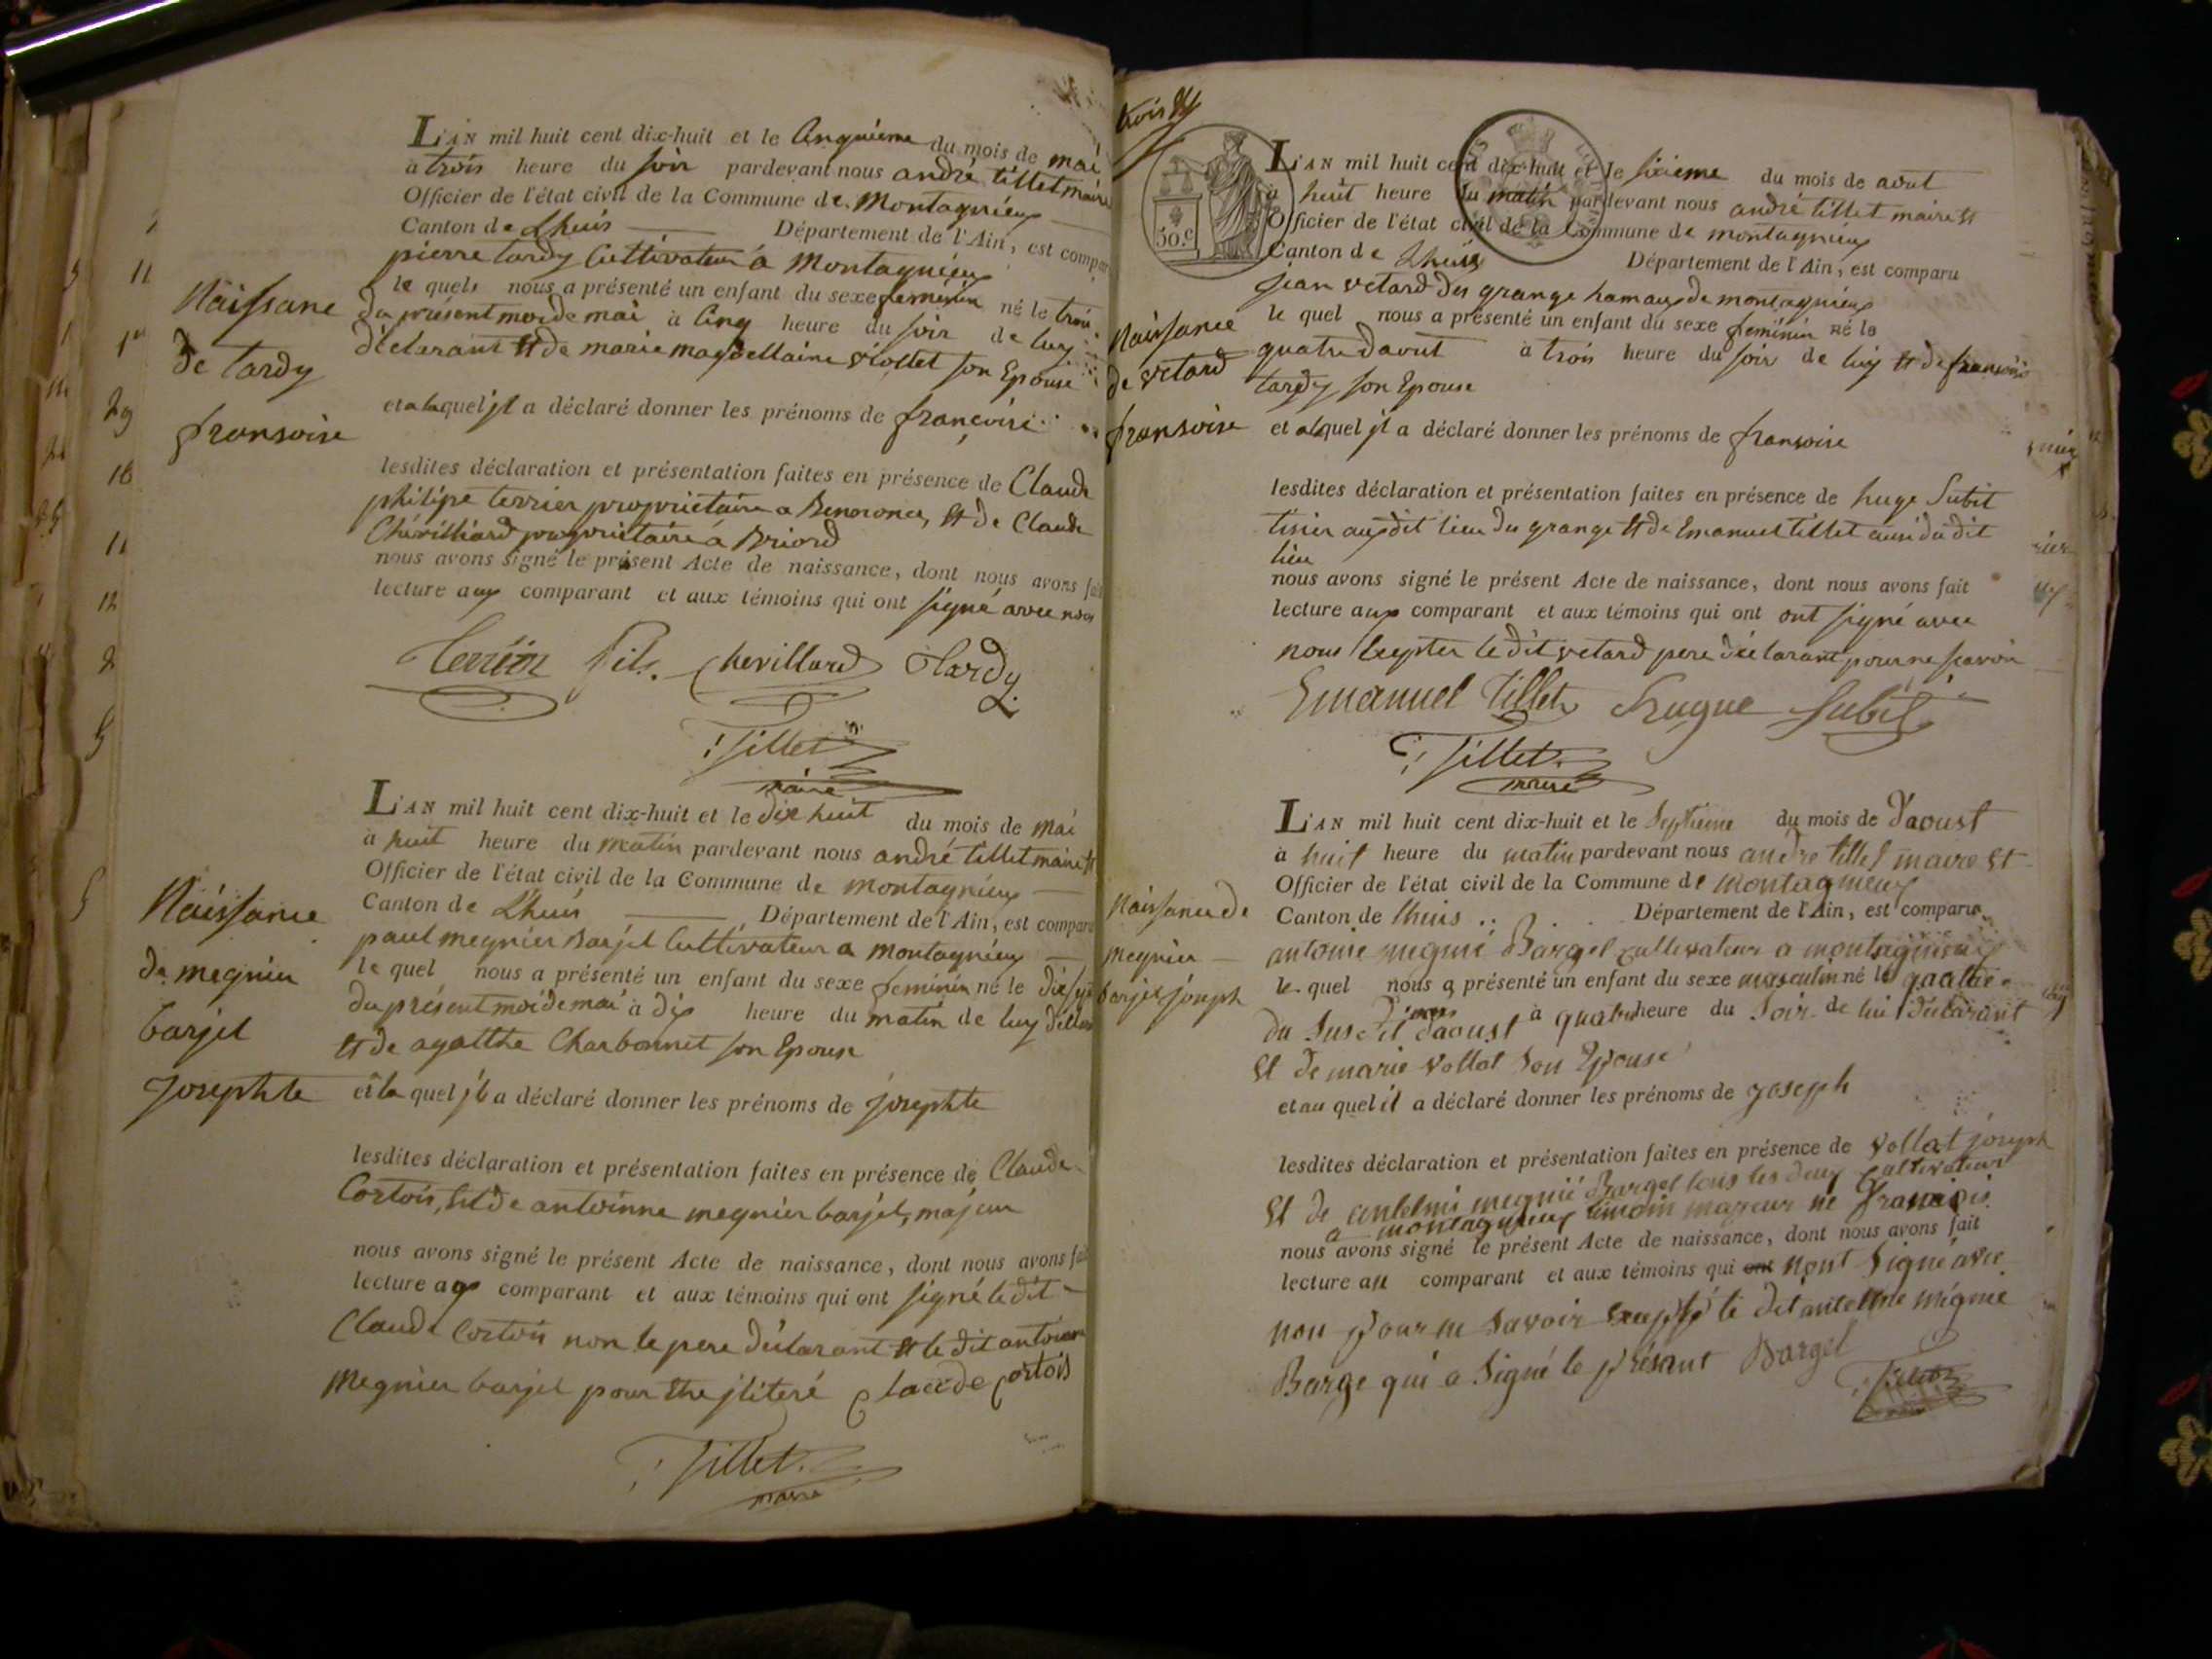 L'AN mil huit cent dix-huit et le Cinquième du mois de mai
à trois heure du soir pardevant nous andré tillet maire
Officier de l'état civil de la Commune de Montagnieux
Canton de Lhuis Département de l'Ain, est compar
pierre tardy Cultivateur a Montagnieux
le quel nous a présenté un enfant du sexe feminin né le trois
du présent mois de mai à Cinq heure du soir de luy
déclarant et de marie magdellaine viollet son Epouse
et a laquel jl a déclaré donner les prénoms de françoise
lesdites déclaration et présentation faites en présence de Claude
philipe terrier propriétaire a Benonces, et de Claude
Chevilliard propriétaire à Briord
nous avons signé le présent Acte de naissance, dont nous avons fait
lecture aux comparant et aux témoins qui ont signé avec nous
Naissane
de tardy
fransoise
Terrier fils. Chevillard Tardy
Tillet
maire
L'AN mil huit cent dix-huit et le dix huit du mois de mai
à huit heure du matin pardevant nous andré tillet maire et
Officier de l'état civil de la Commune de montagnieux
Canton de Lhuis Département de l'Ain, est comparu
paul megnier Barjel Cultivateur a montagnieux
le quel nous a présenté un enfant du sexe feminin né le dix sept
du présent moi de mai à dix heure du matin de luy
et de agatthe Charbonnet son Epouse
et la quel jl a déclaré donner les prénoms de josephte
lesdites déclaration et présentation faites en présence de Claude
Cortois, et de antoinne megnier barjel, majeur
nous avons signé le présent Acte de naissance, dont nous avons fait
lecture aux comparant et aux témoins qui ont signé le dit
Claude Cortois non le pere déclarant et le dit antoinne
megnier barjel pour etre jliteré Claude Cortois
Naissance
de megnier
barjel
Josephte
Tillet
maire
trois
50.c
L'AN mil huit cent dix-huit et le sixieme du mois de aout
à huit heure du matin pardevant nous andré tillet maire et
Officier de l'état civil de la Commune de montagnieux
Canton de Lhuis Département de l'Ain, est comparu
jean vetard des grange hamaux de montagnieux
le quel nous a présenté un enfant du sexe feminin né le
quatre daout à trois heure du soir de luy et de fransoise
tardy son Epouse
et a laquel jl a déclaré donner les prénoms de fransoise
lesdites déclaration et présentation faites en présence de huge Subit
tisier audit lieu des grange et de Emanuel tillet aussi du dit
lieu
nous avons signé le présent Acte de naissance, dont nous avons fait
lecture aux comparant et aux témoins qui ont ont signé avec
nous Excepter le dit vetard pere déclarant pour ne savoir
Naissance
de vetard
fransoise
Emanuel Tillet hugue Subit
Tillet
maire
L'AN mil huit cent dix-huit et le Septieme du mois de d'aoust
à huit heure du matin pardevant nous andre tillet maire et
Officier de l'état civil de la Commune de montagnieux
Canton de lhuis Département de l'Ain, est comparu
antoine megnié Bargel cultivateur a montagnieux
le quel nous a présenté un enfant du sexe masculin né le quatre
du susdit mois d'aoust à quatre heure du Soir de lui déclarant
et de marie vollat son Epouse
et au quel il a déclaré donner les prénoms de joseph
lesdites déclaration et présentation faites en présence de vollat joseph
et de antelme megnié Bargel tous les deux cultivateurs
a montagnieux témoin majeur né francois
nous avons signé le présent Acte de naissance, dont nous avons fait
lecture au comparant et aux témoins qui ont nont signé avec
nou pour ne savoir excepté le dit antelme mégnié
Barge qui a signé le présent Bargel
Naissance de
megnier
barjel joseph
Tillet
maire